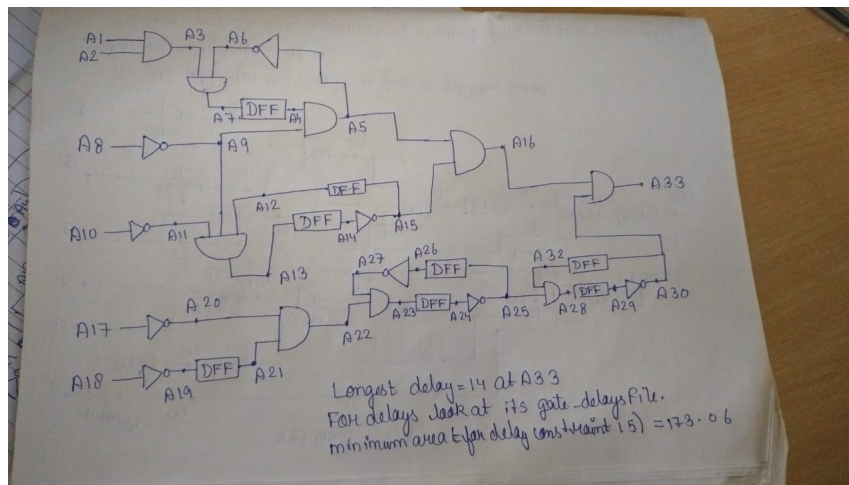 A1
A2
A3
A6
A7
DFF
A4
A5
A8
A9
A16
A33
A12
DFF
A10
A11
DFF
A14
A15
A13
A27
A26
DFF
A32
DFF
A17
A20
A22
A23
DFF
A24
A25
A28
DFF
A29
A30
A18
A19
DFF
A21
Longest delay=14 at A33
For delays look at its gate_delays file.
minimum area (for delay constraint 15) = 173.06